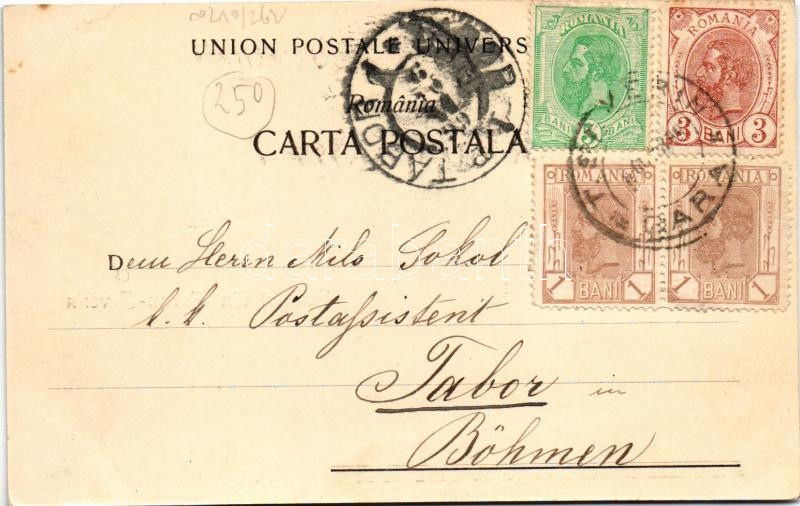 250
UNION POSTALE UNIVERS
România
CARTA POSTALA
TABOR
ROMANIA
BANI
ROMANIA
3 BANI 3
ROMANIA
1 BANI 1
ROMANIA
1 BANI 1
Dem Herrn Milo Sokol
k. k. Postassistent
Tabor in
Böhmen